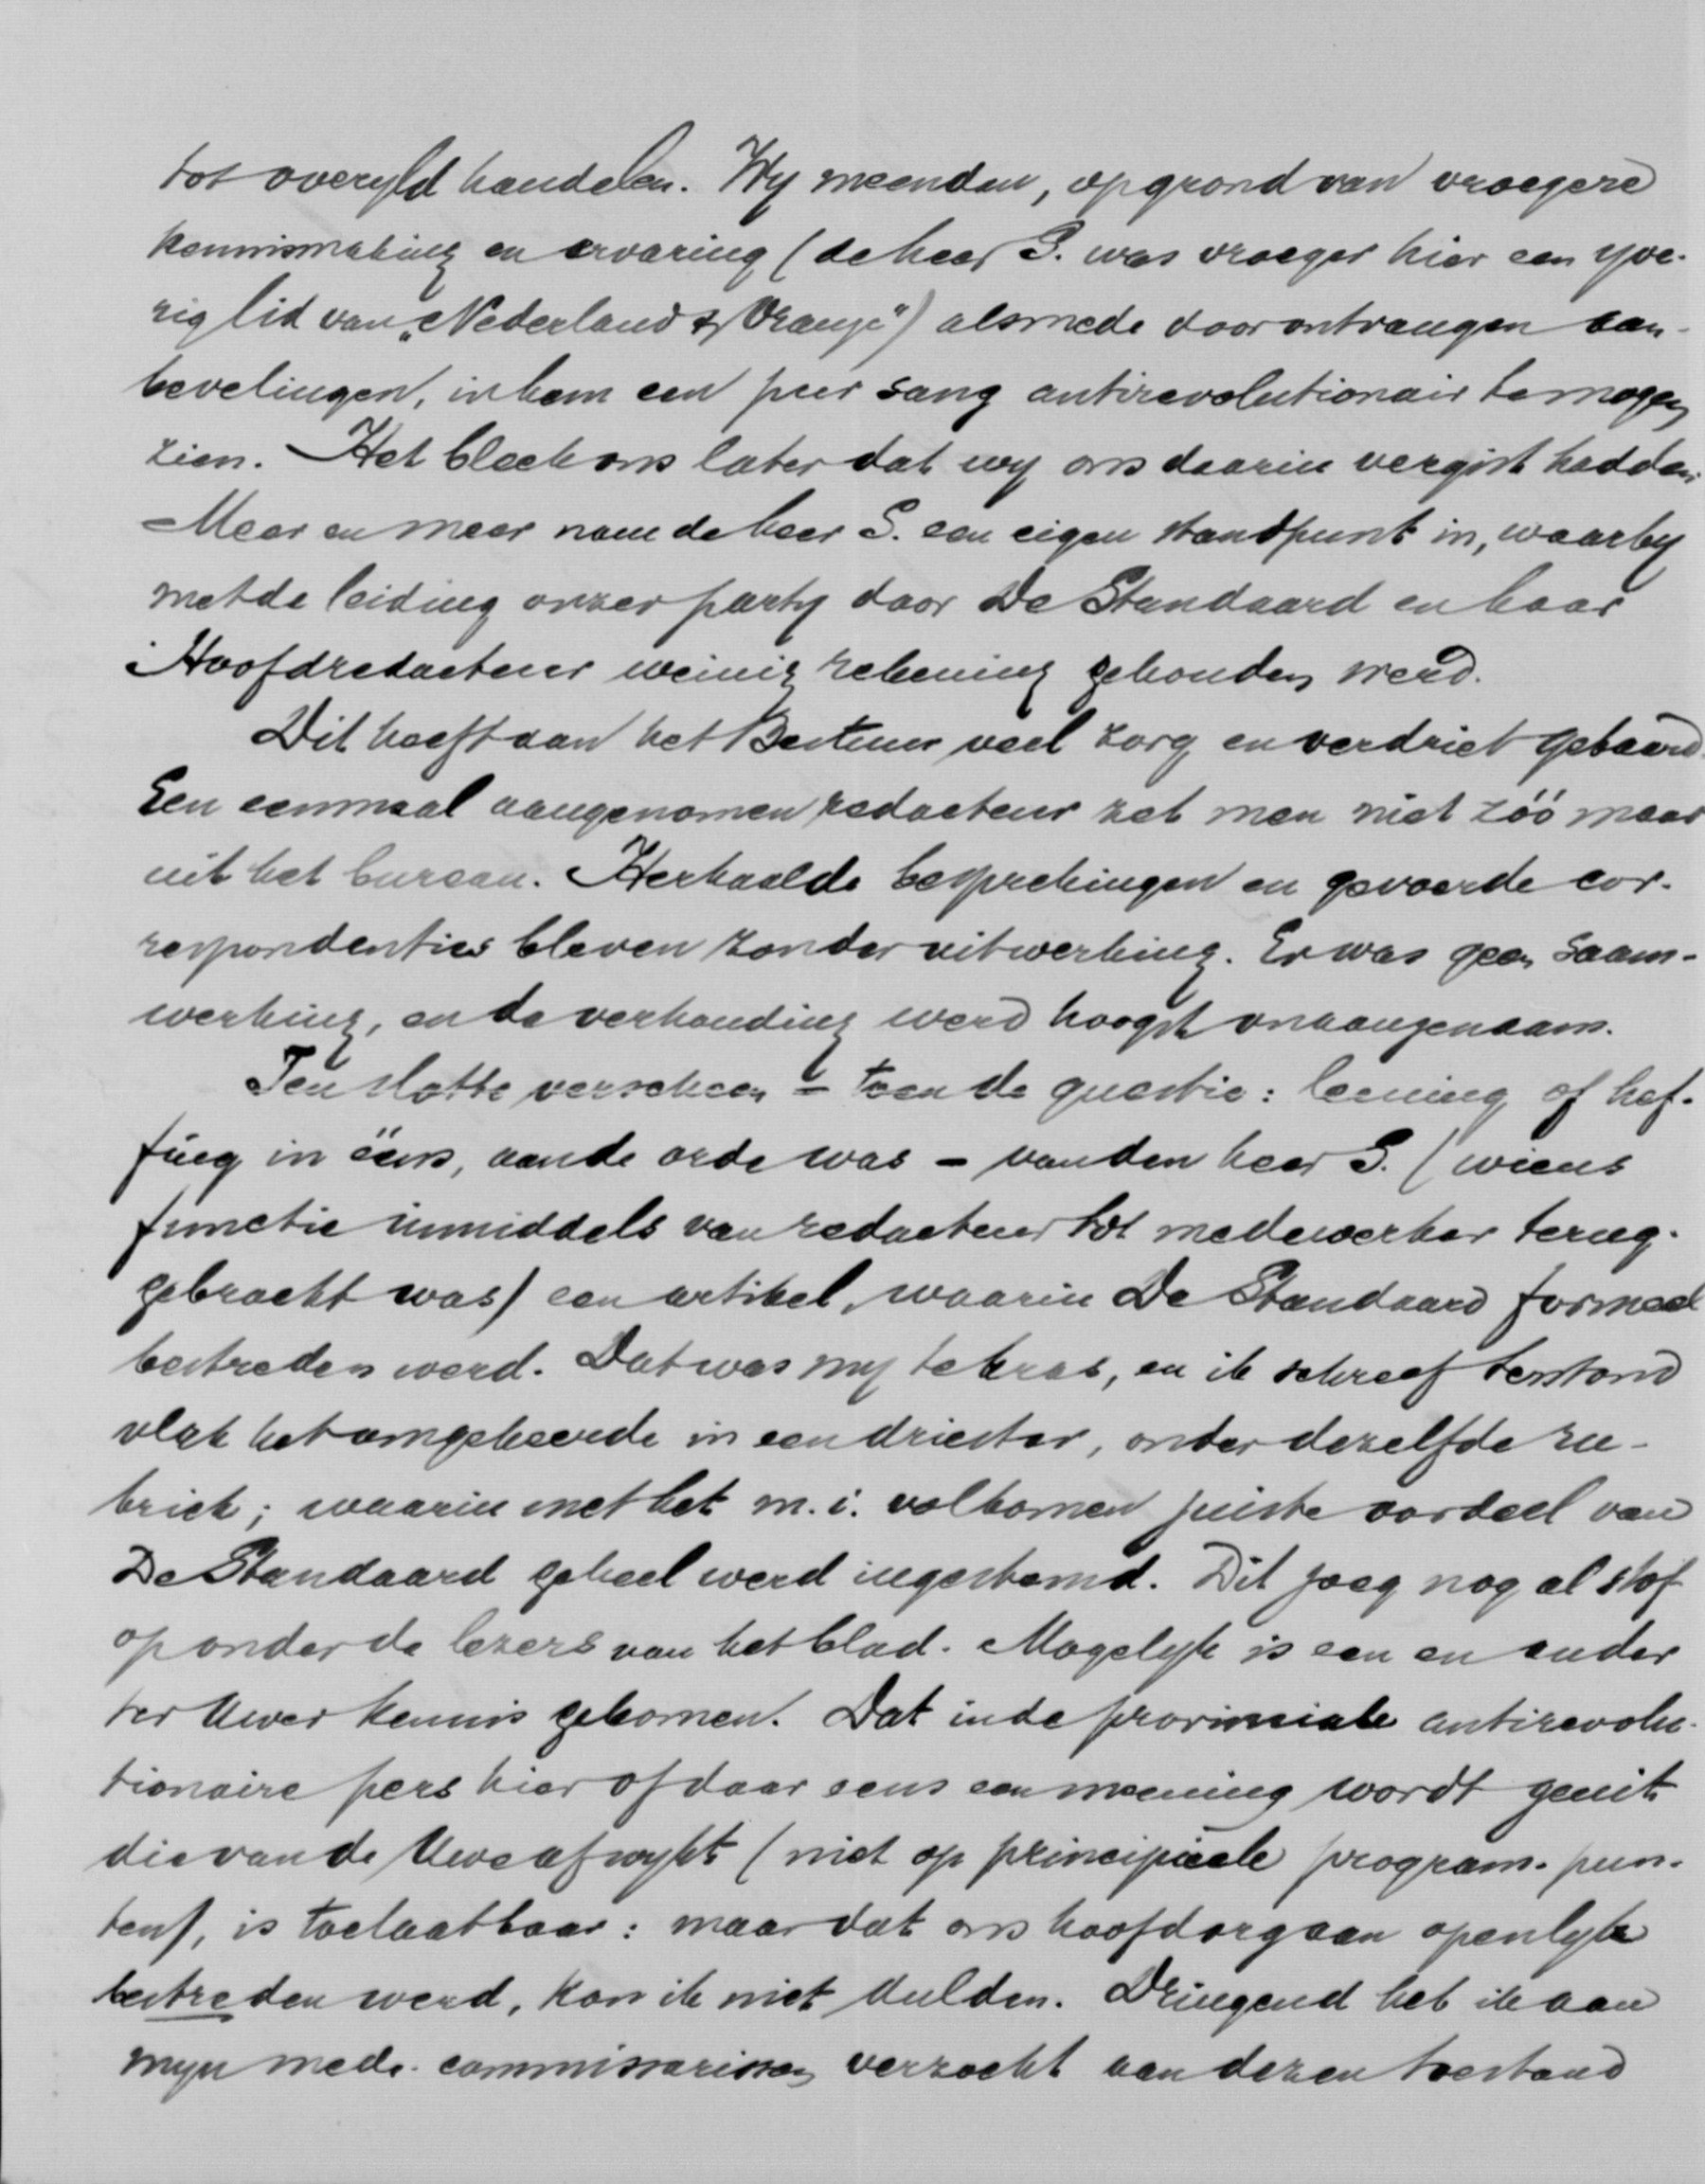 tot overyld handelen. Wy meenden, op grond van vroegere
kennismaking en ervaring (de heer S. was vroeger hier een yve-
rig lid van „Nederland & Oranje") alsmede door ontvangen aan-
bevelingen, in hem een pur sang antirevolutionair te mogen
zien. Het bleek ons later dat wy ons daarin vergist hadden.
Meer en meer nam de heer S. een eigen standpunt in, waarby
met de leiding onzer party door De Standaard en haar
Hoofdredacteur weinig rekening gehouden werd.
Dit heeft aan het Bestuur veel zorg en verdriet gebaard.
Een eenmaal aangenomen redacteur zet men niet zóó maar
uit het bureau. Herhaalde besprekingen en gevoerde cor-
respondenties bleven zonder uitwerking. Er was geen saam-
werking, en de verhouding werd hoogst onaangenaam.
Ten slotte verscheen - toen de questie: leening of hef-
fing in ééns, aan de orde was - van den heer S. (wiens
functie inmiddels van redacteur tot medewerker terug-
gebracht was) een artikel, waarin De Standaard formeel
bestreden werd. Dat was my te kras, en ik schreef terstond
vlak het omgekeerde in een driester, onder dezelfde ru-
briek; waarin met het m. i. volkomen juiste oordeel van
De Standaard geheel werd ingestemd. Dit joeg nog al stof
op onder de lezers van het blad. Mogelyk is een en ander
ter Uwer kennis gekomen. Dat in de provinciale antirevolu-
tionaire pers hier of daar eens een meening wordt geuit
die van de Uwe afwykt (niet op principieele program-pun-
ten), is toelaatbaar: maar dat ons hoofdorgaan openlyk
bestreden werd, kon ik niet dulden. Dringend heb ik aan
myn mede-commissarissen verzocht aan dezen toestand